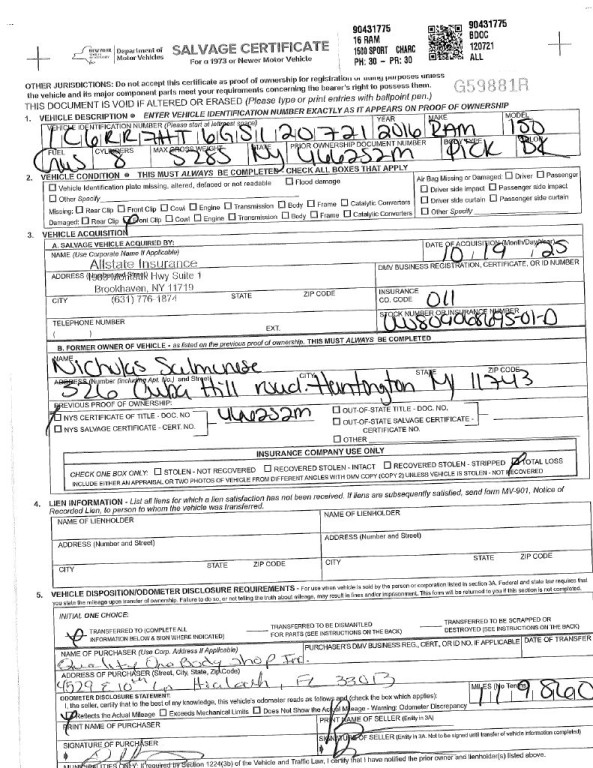 90431775
16 RAM
1500 SPORT CHARC
PH: 30 - PR: 30
90431775
BDOC
120721
ALL
NEW YORK
Department of
Motor Vehicles
SALVAGE CERTIFICATE
For a 1973 or Newer Motor Vehicle
G59881R
OTHER JURISDICTIONS: Do not accept this certificate as proof of ownership for registration or titling purposes unless
the vehicle and its major component parts meet your requirements concerning the bearer's right to possess them.
THIS DOCUMENT IS VOID IF ALTERED OR ERASED (Please type or print entries with ballpoint pen.)
1. VEHICLE DESCRIPTION • ENTER VEHICLE IDENTIFICATION NUMBER EXACTLY AS IT APPEARS ON PROOF OF OWNERSHIP
VEHICLE IDENTIFICATION NUMBER YEAR MAKE MODEL
2016 RAM
FUEL CYLINDERS MAX GROSS WEIGHT STATE PRIOR OWNERSHIP DOCUMENT NUMBER
8 5285 NY 466252m PICK
2. VEHICLE CONDITION • THIS MUST ALWAYS BE COMPLETED - CHECK ALL BOXES THAT APPLY
Vehicle Identification plate missing, altered, defaced or not readable Flood damage
Other Specify
Missing: Rear Clip Front Clip Cowl Engine Transmission Body Frame Catalytic Converters
Damaged: Rear Clip Front Clip Cowl Engine Transmission Body Frame Catalytic Converters
Air Bag Missing or Damaged: Driver Passenger
Driver side impact Passenger side impact
Driver side curtain Passenger side curtain
Other Specify
3. VEHICLE ACQUISITION
A. SALVAGE VEHICLE ACQUIRED BY:
DATE OF ACQUISITION (Month/Day/Year)
10 19 25
NAME (Use Corporate Name If Applicable)
Allstate Insurance
DMV BUSINESS REGISTRATION, CERTIFICATE, OR ID NUMBER
ADDRESS
Hwy Suite 1
Brookhaven, NY 11719
(631) 776-1874
CITY STATE ZIP CODE
INSURANCE
CO. CODE 011
TELEPHONE NUMBER
( ) EXT.
STOCK NUMBER OR INSURANCE NUMBER
B. FORMER OWNER OF VEHICLE - as listed on the previous proof of ownership. THIS MUST ALWAYS BE COMPLETED
NAME
Nicholas
ADDRESS (Number (Including Apt. No.) and Street) CITY STATE ZIP CODE
326 Cuba Hill road Huntington NY 11743
PREVIOUS PROOF OF OWNERSHIP:
NYS CERTIFICATE OF TITLE - DOC. NO. 466252m
NYS SALVAGE CERTIFICATE - CERT. NO.
OUT-OF-STATE TITLE - DOC. NO.
OUT-OF-STATE SALVAGE CERTIFICATE -
CERTIFICATE NO.
OTHER
INSURANCE COMPANY USE ONLY
CHECK ONE BOX ONLY: STOLEN - NOT RECOVERED RECOVERED STOLEN - INTACT RECOVERED STOLEN - STRIPPED TOTAL LOSS
INCLUDE EITHER AN APPRAISAL OR TWO PHOTOS OF VEHICLE FROM DIFFERENT ANGLES WITH DMV COPY (COPY 2) UNLESS VEHICLE IS STOLEN - NOT RECOVERED
4. LIEN INFORMATION - List all liens for which a lien satisfaction has not been received. If liens are subsequently satisfied, send form MV-901, Notice of
Recorded Lien, to person to whom the vehicle was transferred.
NAME OF LIENHOLDER NAME OF LIENHOLDER
ADDRESS (Number and Street) ADDRESS (Number and Street)
CITY STATE ZIP CODE CITY STATE ZIP CODE
5. VEHICLE DISPOSITION/ODOMETER DISCLOSURE REQUIREMENTS - For use when vehicle is sold by the person or corporation listed in section 3A. Federal and state law requires that
you state the mileage upon transfer of ownership. Failure to do so, or not telling the truth about mileage, may result in fines and/or imprisonment. This form will be returned to you if this section is not completed.
INITIAL ONE CHOICE:
TRANSFERRED TO (COMPLETE ALL
INFORMATION BELOW & SIGN WHERE INDICATED)
TRANSFERRED TO BE DISMANTLED
FOR PARTS (SEE INSTRUCTIONS ON BACK)
TRANSFERRED TO BE SCRAPPED OR
DESTROYED (SEE INSTRUCTIONS ON BACK)
NAME OF PURCHASER (Use Corp. Address If Applicable) PURCHASER'S DMV BUSINESS REG., CERT, OR ID NO. IF APPLICABLE DATE OF TRANSFER
Quality One Body Shop Inc
ADDRESS OF PURCHASER (Street, City, State, Zip Code)
4529 E 10th Ln Hialeah, FL 33013
ODOMETER DISCLOSURE STATEMENT:
I, the seller, certify that to the best of my knowledge, this vehicle's odometer reads as follows and (check the box which applies):
MILES (No Tenths)
119,860
Reflects the Actual Mileage Exceeds Mechanical Limits Does Not Show the Actual Mileage - Warning: Odometer Discrepancy
PRINT NAME OF PURCHASER PRINT NAME OF SELLER (Entity in 3A)
SIGNATURE OF PURCHASER SIGNATURE OF SELLER (Entity in 3A. Not to be signed until transfer of vehicle information completed)
is required by Section 1224(3b) of the Vehicle and Traffic Law, I certify that I have notified the prior owner and lienholder(s) listed above.